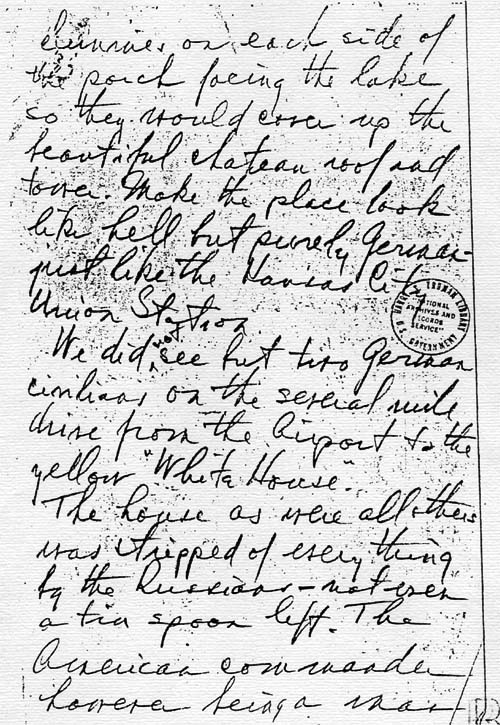 chimnies on each side of
the porch facing the lake
so they would cover up the
beautiful chateau roof and
tower. Make the place look
like hell but purely German-
just like the Kansas City
Union Station
We did not see but two German
civilians on the several mile
drive from the Airport to the
yellow "White House".
The house as were all others
was stripped of everything
by the Russians - not even
a tin spoon left. The
American commander
however being a man
TRUMAN LIBRARY
NATIONAL
ARCHIVES AND
RECORDS
SERVICE
GOVERNMENT